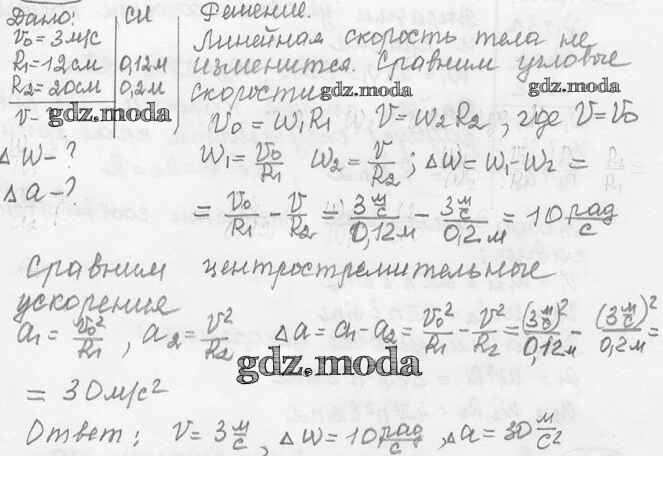 Дано: СИ Решение.
V₀ = 3 м/с Линейная скорость тела не
R₁ = 12 см 0,12 м изменится. Сравним угловые
R₂ = 20 см 0,2 м скорости gdz.moda gdz.moda
V - gdz.moda V₀ = W₁R₁ V = W₂R₂, где V = V₀
ΔW - ? W₁ = V₀/R₁ W₂ = V/R₂; ΔW = W₁ - W₂ =
Δa - ?
= V₀/R₁ - V/R₂ = 3 м/с / 0,12 м - 3 м/с / 0,2 м = 10 рад/с
Сравним центростремительные
ускорения
a₁ = V₀²/R₁, a₂ = V²/R₂ Δa = a₁ - a₂ = V₀²/R₁ - V²/R₂ = (3 м/с)²/0,12 м - (3 м/с)²/0,2 м =
gdz.moda
= 30 м/с²
Ответ: V = 3 м/с, ΔW = 10 рад/с, Δa = 30 м/с²